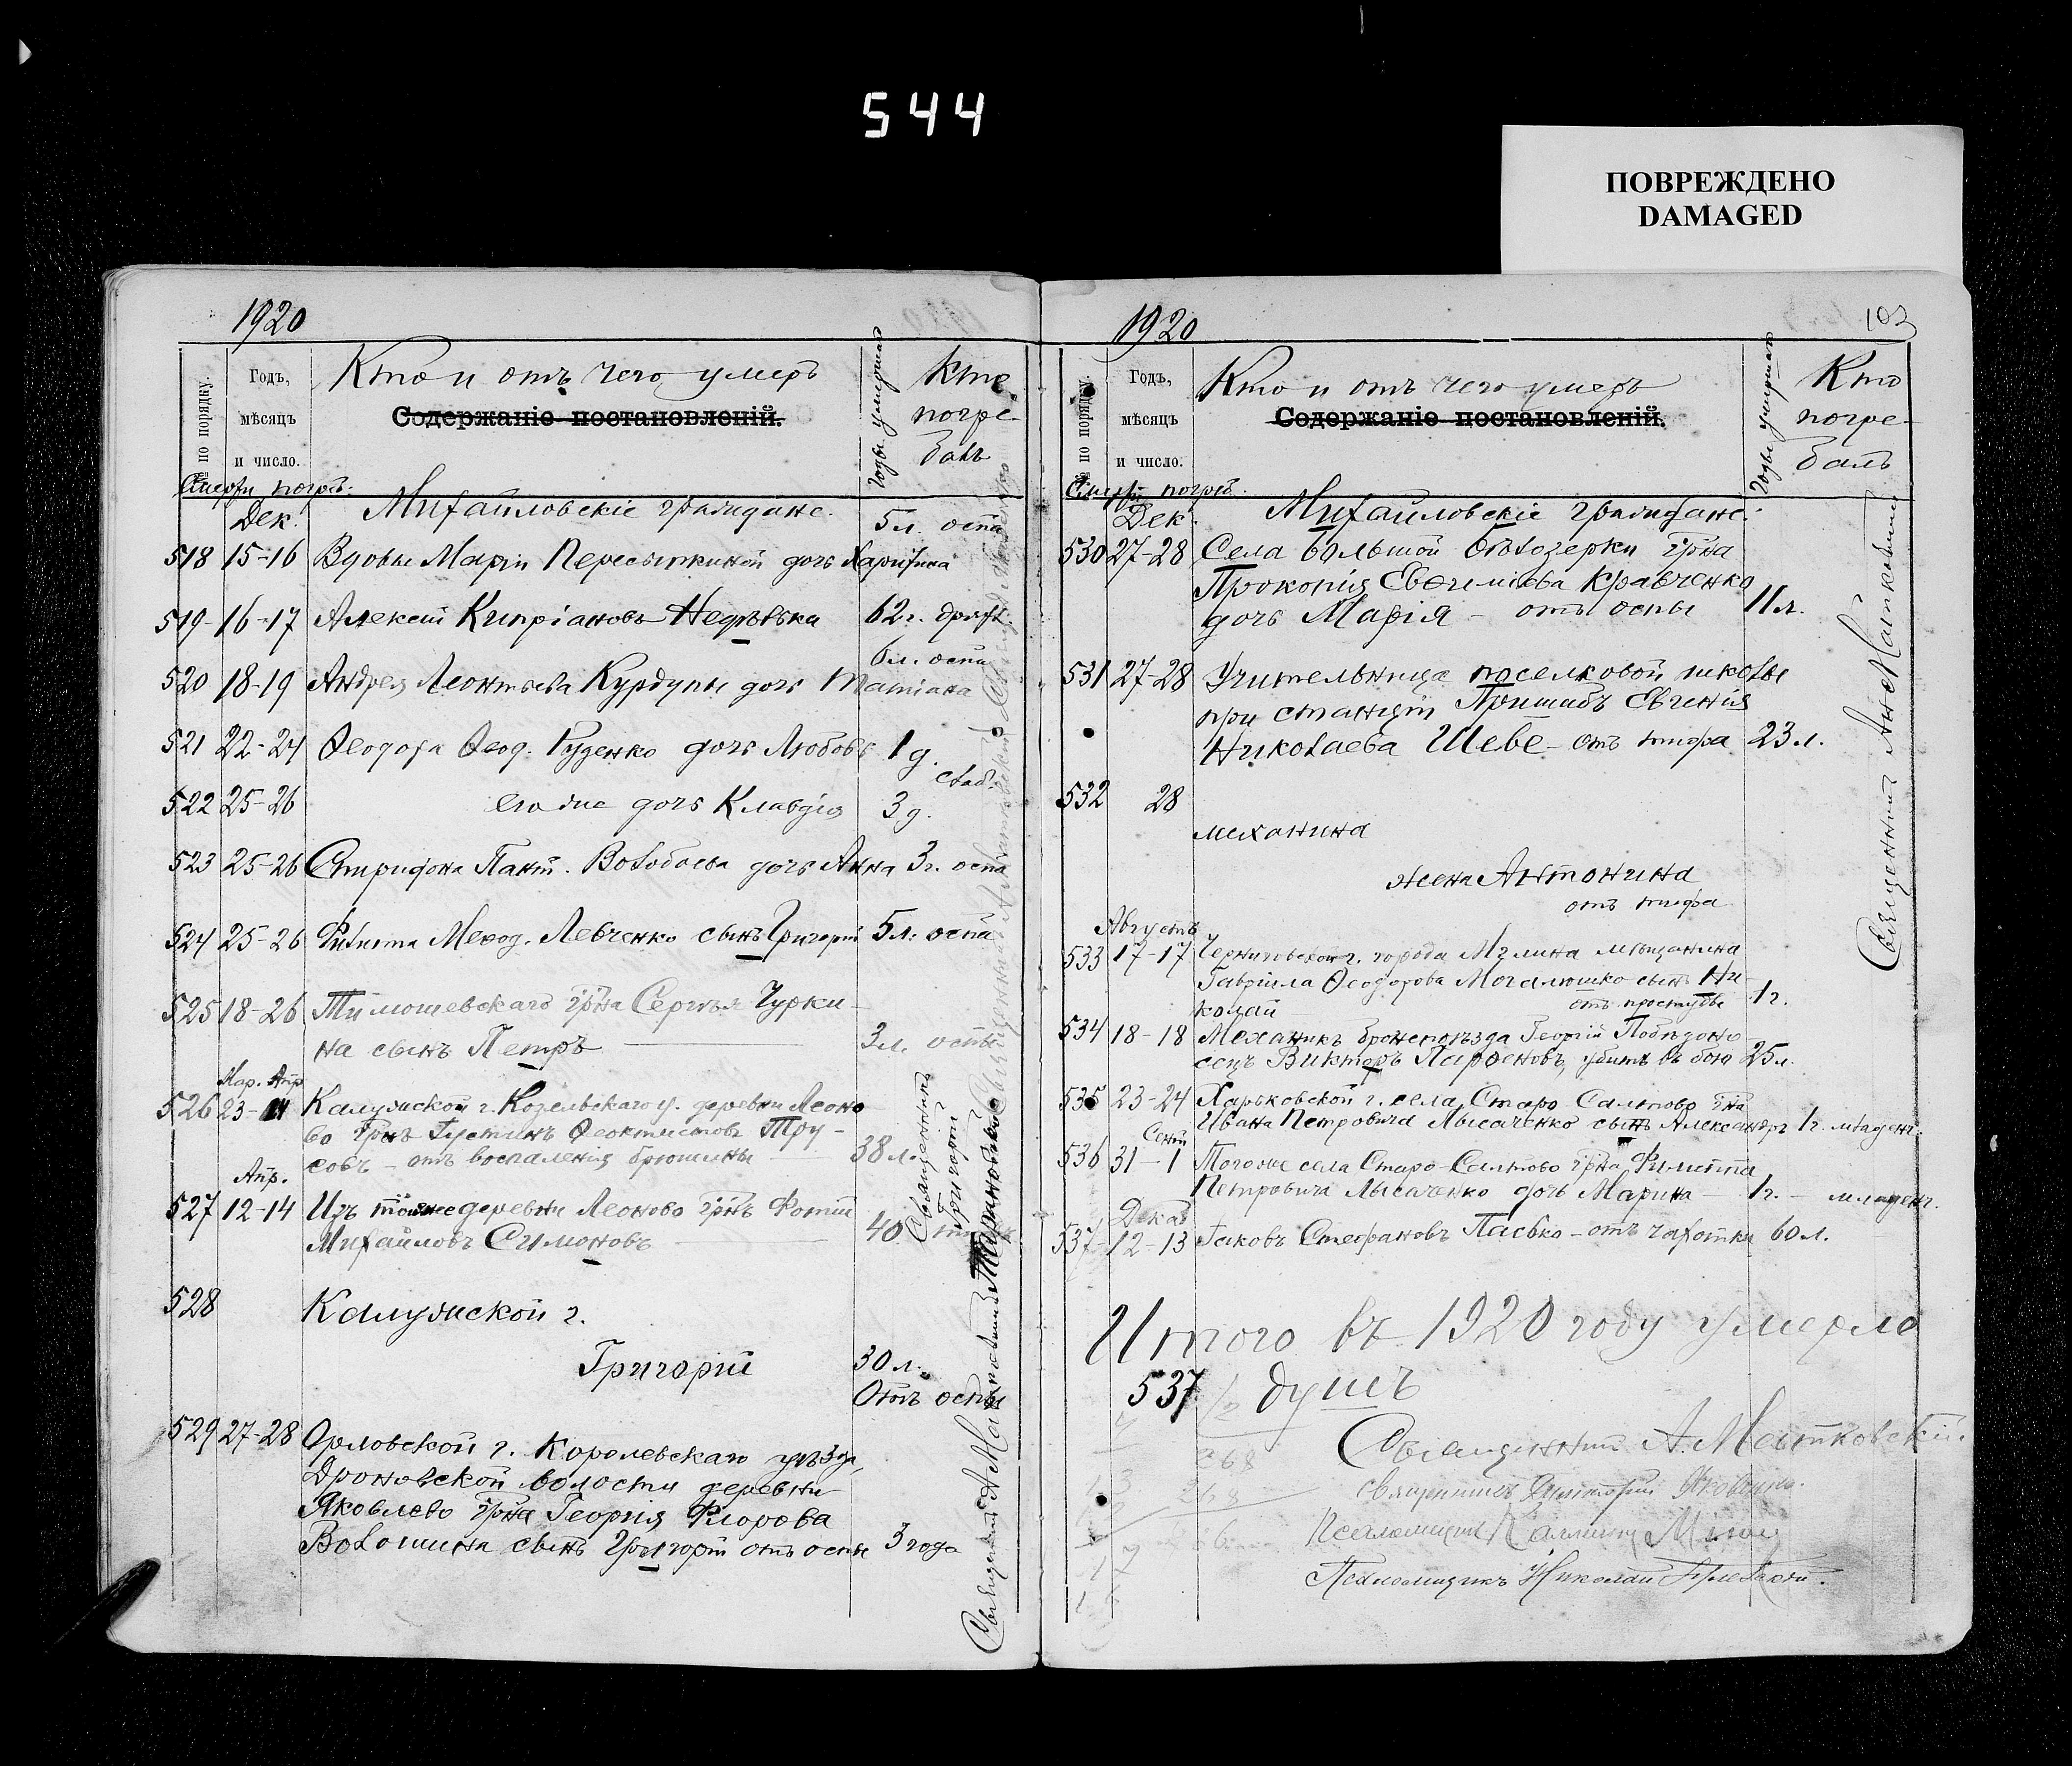 544
ПОВРЕЖДЕНО
DAMAGED
1920
№ по порядку.
Годъ,
мѣсяцъ
и число.
Смерти погреб.
Кто и отъ чего умеръ
Содержаніе постановленій.
Годы умершаго
Кто
погре-
балъ
Дек. Михайловскіе граждане.
518 15-16 Вдовы Маріи Пересыпкиной дочь Харитина 5л. оспа
519 16-17 Алексій Кипріановъ Недѣлька 62г. дряхл.
520 18-19 Андрея Леонтьева Курдупы дочь Татіана 6л. оспа
521 22-24 Ѳеодора Ѳеод. Руденко дочь Любовь 1д.
522 25-26 его же дочь Клавдія 3д. слаб.
523 25-26 Спиридона Пант. Волобоева дочь Анна 3г. оспа
524 25-26 Филиппа Меѳод. Левченко сынъ Григорій 5л. оспа
525 18-26 Тимошевскаго гр-на Сергѣя Чурки-
на сынъ Петръ 3л. оспы
Мар. Апр
526 23- Калужской г. Козельскаго у. деревни Леоно-
во гр-нъ Іустинъ Ѳеоктистовъ Тру-
совъ - отъ воспаления брюшины 38л.
Апр.
527 12-14 Изъ тойже деревни Леоново гр-нъ Фотій
Михайловъ Симоновъ 40
Священникъ
Григорій
528 Калужской г.
Григорій 30л.
Отъ оспы
529 27-28 Орловской г. Королевскаго уѣзда,
Дроновской волости деревни
Яковлево гр-на Георгія Флорова
Волошина сынъ Григорій отъ оспы 3 года
Священникъ А Матковскій
1920
103
№ по порядку.
Годъ,
мѣсяцъ
и число.
Смерти погреб.
Кто и отъ чего умеръ
Содержаніе постановленій.
Годы умершаго
Кто
погре-
балъ
Дек. Михайловскіе граждане.
530 27-28 Села Большой Бѣлозерки гр-на
Прокопія Евѳиміева Кравченко
дочь Марія - отъ оспы 11л.
531 27-28 Учительница поселковой школы
при станціи Пришибъ Евгенія
Николаева Шеве - отъ тифа 23л.
532 28
механика
жена Антонина
отъ тифа
Августъ
533 17-17 Черниговской г. города Мглина мѣщанина
Гавріила Ѳеодорова Могалюшко сынъ Ни-
колай отъ простуды 1г.
534 18-18 Механикъ бронепоѣзда Георгій Побѣдоно-
сецъ Викторъ Парѳеновъ, убитъ въ бою 25л.
535 23-24 Харьковской г. села Старо Салтово гр-на
Ивана Петровича Лысаченко сынъ Александръ 1г. младенч.
Сент
536 31-1 Того же села Старо-Салтово гр-на Филиппа
Петровича Лысаченко дочь Марина - 1г. - младенч.
Декаб
537 12-13 Іаковъ Стефановъ Пасько - отъ чахотки 60л.
Священникъ А Матковскій
Итого въ 1920 году умерло
537 душъ
268
268
Священникъ А. Матковскій.
Священникъ Григорій
Псаломщикъ
Псаломщикъ Николай